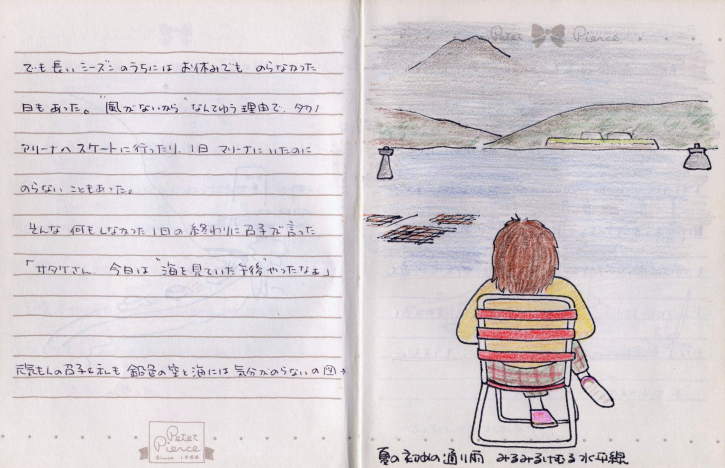 でも長いシーズンのうちには お休みでも のらなかった
日もあった。"風がないから" なんてゆう理由で、タカノ
アリーナへスケートに行ったり、1日 マリーナにいたのに
のらないこともあった。
そんな 何もしなかった1日の終わりに 子が言った
「サタケさん 今日は "海を見ていた午後"やったなぁ」
元気もんの 子も私も 鉛色の空と海には気分がのらないの図→
Peter
Pierce
Since
Peter Pierce
夏の初めの通り雨 みるみるけむる水平線